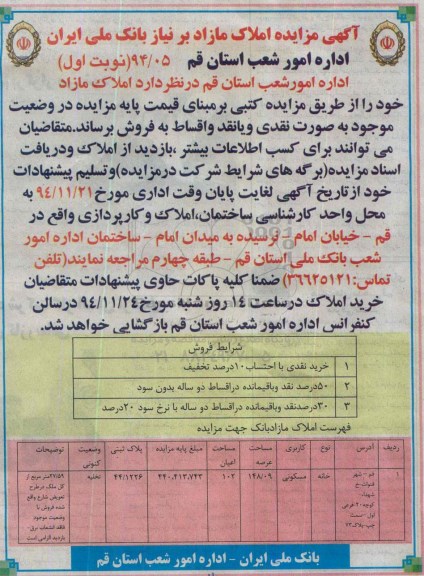 آگهی مزایده املاک مازاد بر نیاز بانک ملی ایران
اداره امور شعب استان قم ۹۴/۰۵(نوبت اول)
اداره امورشعب استان قم درنظردارد املاک مازاد
خود را از طریق مزایده کتبی برمبنای قیمت پایه مزایده در وضعیت
موجود به صورت نقدی ویانقد واقساط به فروش برساند.متقاضیان
می توانند برای کسب اطلاعات بیشتر ،بازدید از املاک ودریافت
اسناد مزایده(برگه های شرایط شرکت درمزایده)وتسلیم پیشنهادات
خود ازتاریخ آگهی لغایت پایان وقت اداری مورخ ۹۴/۱۱/۲۱ به
محل واحد کارشناسی ساختمان،املاک وکارپردازی واقع در
قم - خیابان امام - نرسیده به میدان امام - ساختمان اداره امور
شعب بانک ملی استان قم - طبقه چهارم مراجعه نمایند(تلفن
تماس:۳۶۶۲۵۱۲۱) ضمنا کلیه پاکات حاوی پیشنهادات متقاضیان
خرید املاک درساعت ۱۴ روز شنبه مورخ ۹۴/۱۱/۲۴ درسالن
کنفرانس اداره امور شعب استان قم بازگشایی خواهد شد.
شرایط فروش
۱ خرید نقدی با احتساب ۱۰درصد تخفیف
۲ ۵۰درصد نقد وباقیمانده دراقساط دو ساله بدون سود
۳ ۳۰درصدنقد وباقیمانده دراقساط دو ساله با نرخ سود ۲۰درصد
فهرست املاک مازادبانک جهت مزایده
ردیف آدرس نوع کاربری مساحت عرصه مساحت اعیان مبلغ پایه مزایده پلاک ثبتی وضعیت کنونی توضیحات
۱ قم - شهر
خانه مسکونی ۱۴۸/۰۹ ۱۰۲ ۴۴۰،۴۱۳،۷۴۳ ۴۴/۱۲۲۶ تخلیه
شهداء
کوچه ۲۰
اول - سمت
چپ پلاک ۲۳
۲۷/۵۹متر مربع از
کل ملک درطرح
تعریض شارع واقع
شده فروش با
وضعیت موجود
فاقد انشعاب برق-
بازدید الزامی است
بانک ملی ایران - اداره امور شعب استان قم